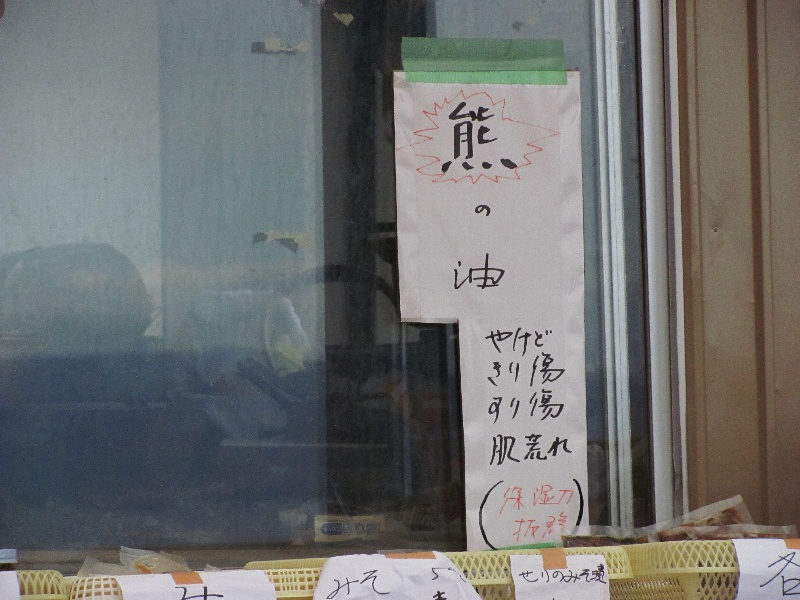 熊
の
油
やけど
きり傷
すり傷
肌荒れ
(保湿力
抜群)
みそ
せりのみそ漬
各